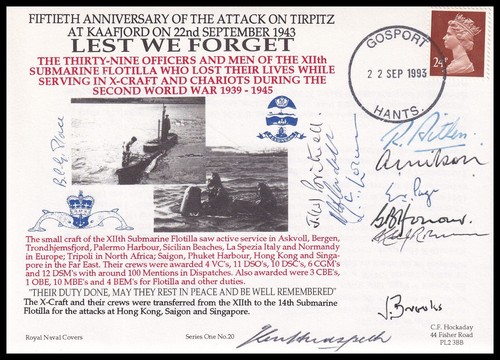 FIFTIETH ANNIVERSARY OF THE ATTACK ON TIRPITZ
AT KAAFJORD ON 22nd SEPTEMBER 1943
LEST WE FORGET
THE THIRTY-NINE OFFICERS AND MEN OF THE XIIth
SUBMARINE FLOTILLA WHO LOST THEIR LIVES WHILE
SERVING IN X-CRAFT AND CHARIOTS DURING THE
SECOND WORLD WAR 1939 - 1945
GOSPORT
22 SEP 1993
HANTS.
The small craft of the XIIth Submarine Flotilla saw active service in Askvoll, Bergen,
Trondhjemsfjord, Palermo Harbour, Sicilian Beaches, La Spezia Italy and Normandy
in Europe; Tripoli in North Africa; Saigon, Phuket Harbour, Hong Kong and Singa-
pore in the Far East. Their crews were awarded 4 VC's, 11 DSO's, 10 DSC's, 6 CGM's
and 12 DSM's with around 100 Mentions in Dispatches. Also awarded were 3 CBE's,
1 OBE, 10 MBE's and 4 BEM's for Flotilla and other duties.
"THEIR DUTY DONE, MAY THEY REST IN PEACE AND BE WELL REMEMBERED"
The X-Craft and their crews were transferred from the XIIth to the 14th Submarine
Flotilla for the attacks at Hong Kong, Saigon and Singapore.
Royal Naval Covers
Series One No.20
C.F. Hockaday
44 Fisher Road
PL2 3BB
R. Aitken
J. Brooks